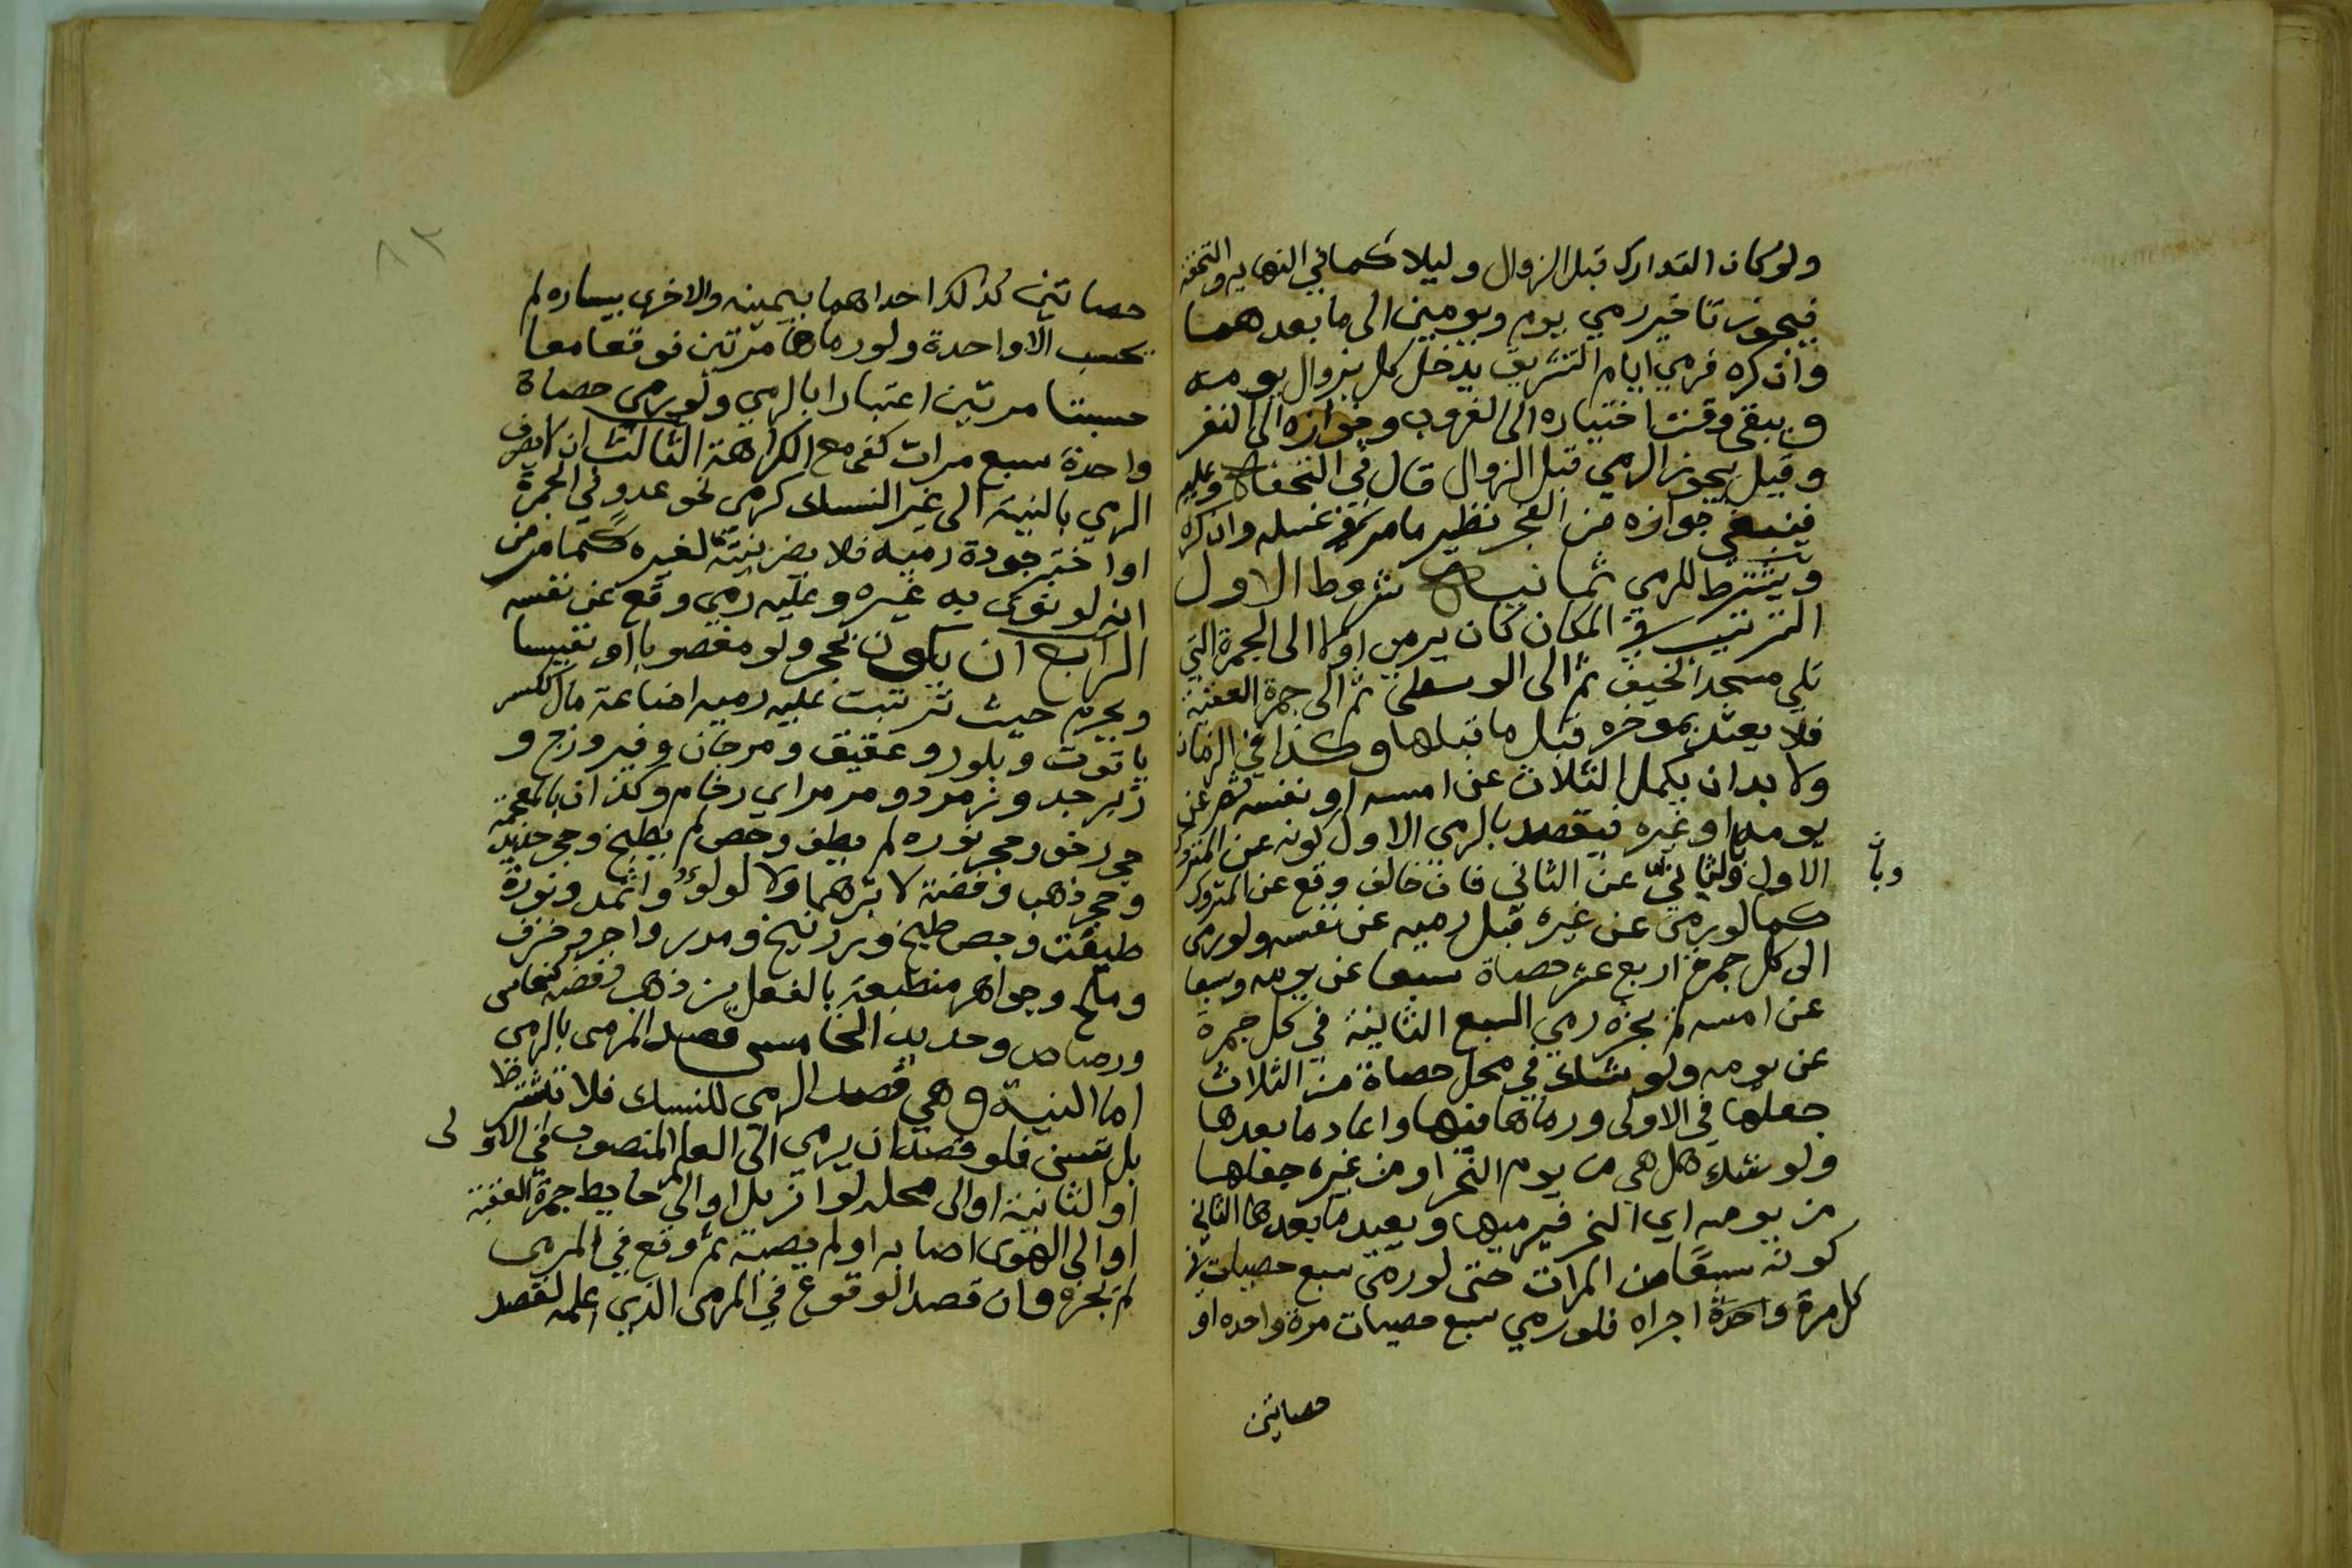 ولو كان التدارك قبل الزوال وليلا كما في النهاية والتحفة
فيجوز تاخير رمي يوم ويومين الى ما بعدهما
وان كره فرمي ايام التشريق يدخل كل بزوال يومه
ويبقى وقت اختياره الى الغروب وجوازه الى النفر
وقيل يجوز الرمي قبل الزوال قال في التحفة وعليه
فينبغي جوازه من الفجر نظير ما مر في غسله وان كره
ويشترط للرمي ثمانية شروط الاول
الترتيب في المكان كان يرمي اولا الى الجمرة التي
تلي مسجد الخيف ثم الى الوسطى ثم الى جمرة العقبة
فلا يعتد بموخره قبل ما قبلها وكذا في الزمان
ولا بد ان يكمل الثلاث عن امسه او نفسه ثم عن
يومه او غيره فيقصد بالرمي الاول كونه عن المتروك
الاول وبالثاني عن الثاني فان خالف وقع عن المتروك
وبا
كما لو رمى عن غيره قبل رميه عن نفسه ولو رمى
الى كل جمرة اربع عشر حصاة سبعا عن يومه وسبعا
عن امسه لم يجزه رمي السبع الثانية في كل جمرة
عن يومه ولو شك في محل حصاة من الثلاث
جعلها في الاولى ورماها منها واعاد ما بعدها
ولو شك هل هي من يوم النحر او من غيره جعلها
من يومه اي النحر فيرميها ويعيد ما بعدها الثاني
كونه سبعا من المرات حتى لو رمى سبع حصيات في
كل مرة واحدة اجزاه فلو رمي سبع حصيات مرة واحده او
حصاتين
٨٢
حصاتين كذلك احداهما بيمينه والاخرى بيساره لم
يحسب الا واحدة ولو رماها مرتين فوقعا معا
حسبتا مرتين اعتبارا بالرمي ولو رمي حصاة
واحدة سبع مرات كفى مع الكراهة الثالث ان لا يصرف
الرمي بالنية الى غير النسك كرمي نحو عدو في الجمرة
او اختبر جودة رميه فلا يضر نيته لغيره كما مر من
انه لو نوى به غيره وعليه رمي وقع عن نفسه
الرابع ان يكون بحجر ولو مغصوبا او نفيسا
ويحرم حيث ترتبت عليه رميه اضاعة مال ككسر
ياقوت وبلور وعقيق ومرجان وفيروزج و
زبرجد وزمرد ومرمر اي رخام وكذان بالمعجمة
حجر رخو وحجر نوره لم يطف وجص لم يطبخ وحجر حديد
وحجر ذهب وفضة لا تبرهما ولا لولؤ واثمد ونورة
طبقت وجص طبخ وزرنيخ ومدر واجر وخزف
وملح وجواهر منطبعة بالفعل من ذهب وفضة كنحاس
ورصاص وحديد الخامس قصد المرمى بالرمي
اما النية وهي قصد الرمي للنسك فلا تشترط
بل تسن فلو قصد ان يرمي الى العلم المنصوب في الاولى
او الثانية او الى محله لو ازيل او الى حايط جمرة العقبة
او الى الهوى اصابه او لم يصبه ثم وقع في المرمى
لم يجزه وان قصد الوقوع في المرمى الذي اعلمه لقصد